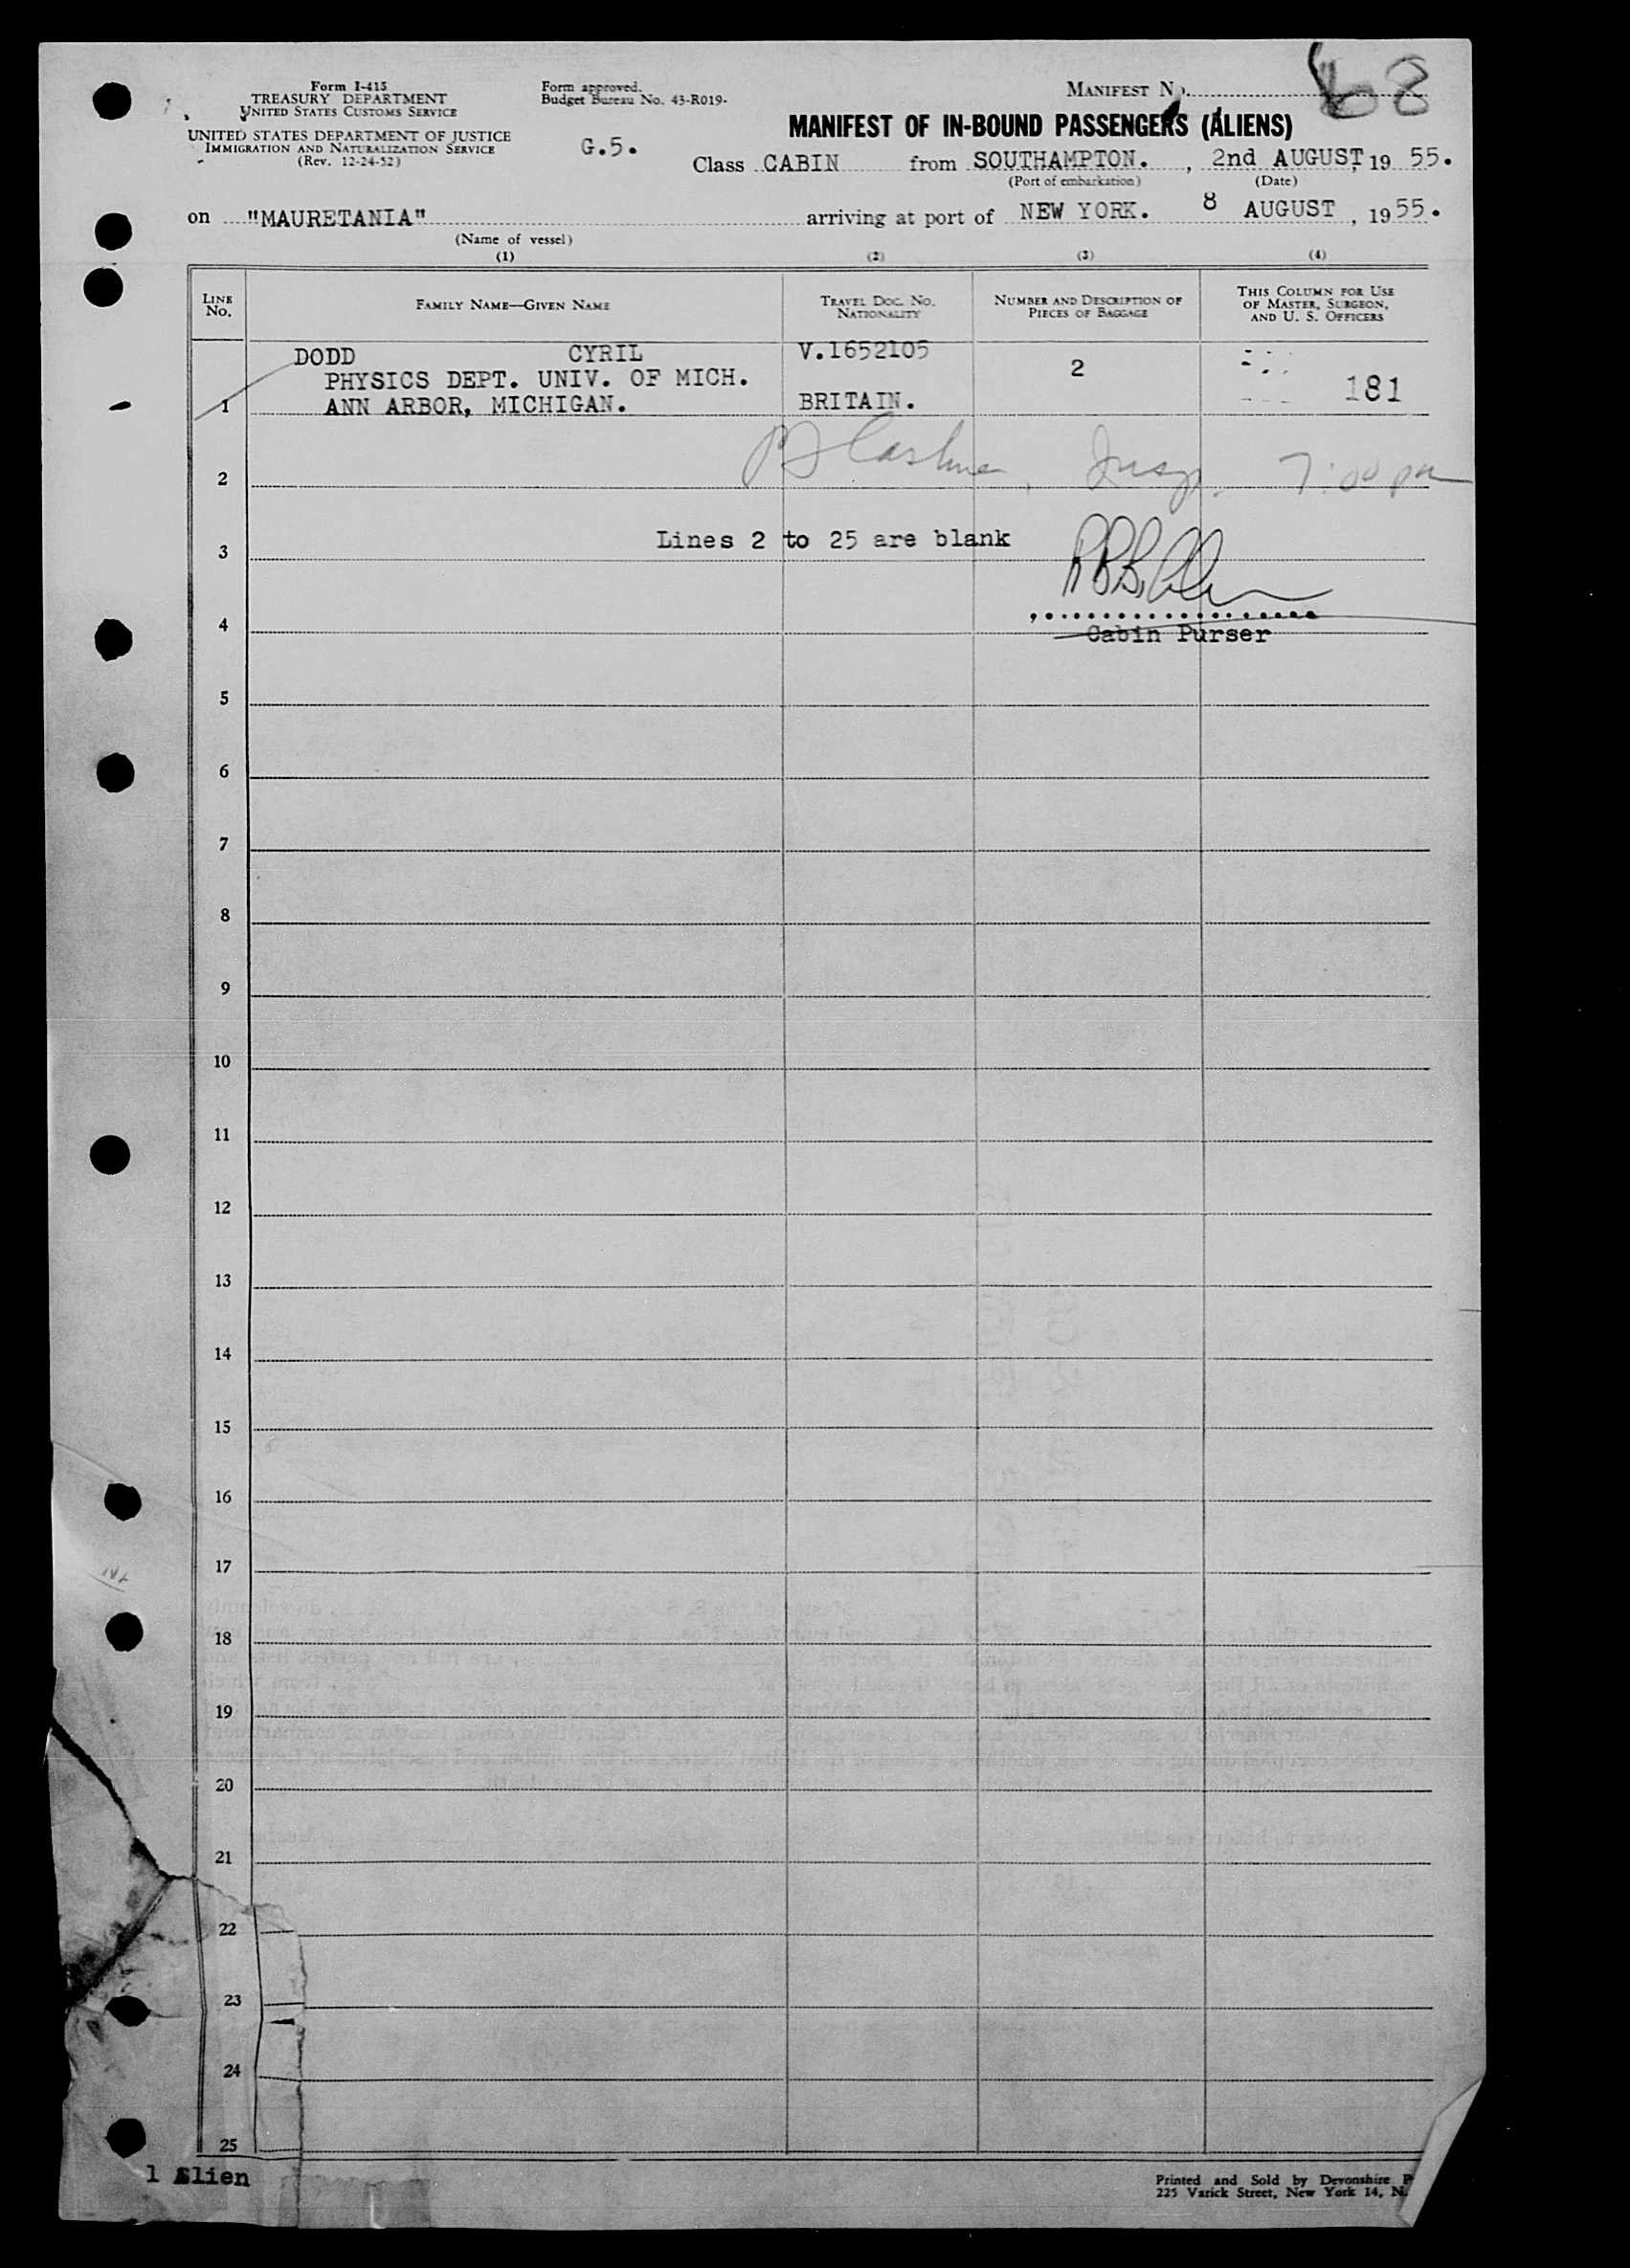 Form I-415
TREASURY DEPARTMENT
UNITED STATES CUSTOMS SERVICE
UNITED STATES DEPARTMENT OF JUSTICE
IMMIGRATION AND NATURALIZATION SERVICE
(Rev. 12-24-52)
Form approved.
Budget Bureau No. 43-R019-
G.5.
MANIFEST No. 68
MANIFEST OF IN-BOUND PASSENGERS (ALIENS)
Class CABIN from SOUTHAMPTON. , 2nd AUGUST, 19 55.
(Port of embarkation) (Date)
on "MAURETANIA" arriving at port of NEW YORK. 8 AUGUST, 1955.
(Name of vessel)
(1) (2) (3) (4)
LINE No. FAMILY NAME—GIVEN NAME TRAVEL DOC. No. NATIONALITY NUMBER AND DESCRIPTION OF PIECES OF BAGGAGE THIS COLUMN FOR USE OF MASTER, SURGEON, AND U. S. OFFICERS
DODD CYRIL V.1652105
PHYSICS DEPT. UNIV. OF MICH. 2
1 ANN ARBOR, MICHIGAN. BRITAIN. 181
2 Insp. 7:00 pm
3 Lines 2 to 25 are blank
4 Cabin Purser
5
6
7
8
9
10
11
12
13
14
15
16
17
18
19
20
21
22
23
24
25
1 Alien
Printed and Sold by Devonshire P
225 Varick Street, New York 14, N.